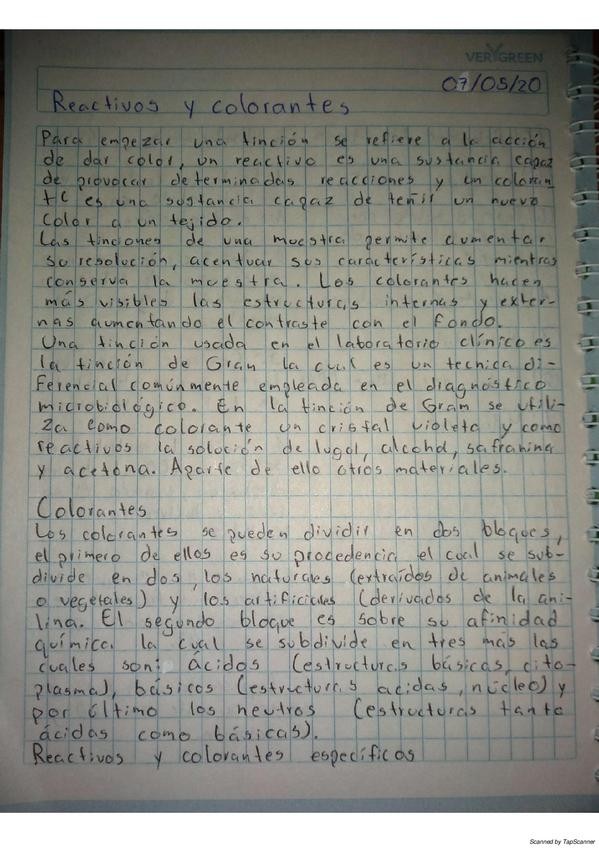 VERYGREEN
07/05/20
Reactivos y colorantes
Para empezar una tinción se refiere a la acción
de dar color, un reactivo es una sustancia capaz
de provocar determinadas reacciones y un coloran
te es una sustancia capaz de teñir un nuevo
color a un tejido.
Las tinciones de una muestra permite aumentar
su resolución, acentuar sus características mientras
conserva la muestra. Los colorantes hacen
más visibles las estructuras internas y exter-
nas aumentando el contraste con el fondo.
Una tinción usada en el laboratorio clínico es
la tinción de Gran la cual es un tecnica di-
ferencial comúnmente empleada en el diagnóstico
microbiológico. En la tinción de Gram se utili-
za como colorante un cristal violeta y como
reactivos la solución de lugol, alcohol, safranina
y acetona. Aparte de ello otros materiales.
Colorantes
Los colorantes se pueden dividir en dos bloques,
el primero de ellos es su procedencia el cual se sub-
divide en dos, los naturales (extraídos de animales
o vegetales) y los artificiales (derivados de la ani-
lina. El segundo bloque es sobre su afinidad
química la cual se subdivide en tres más las
cuales son: ácidos (estructuras básicas, cito-
plasma), básicos (estructuras acidas, núcleo) y
por último los neutros (estructuras tanto
ácidas como básicas).
Reactivos y colorantes específicos
Scanned by TapScanner